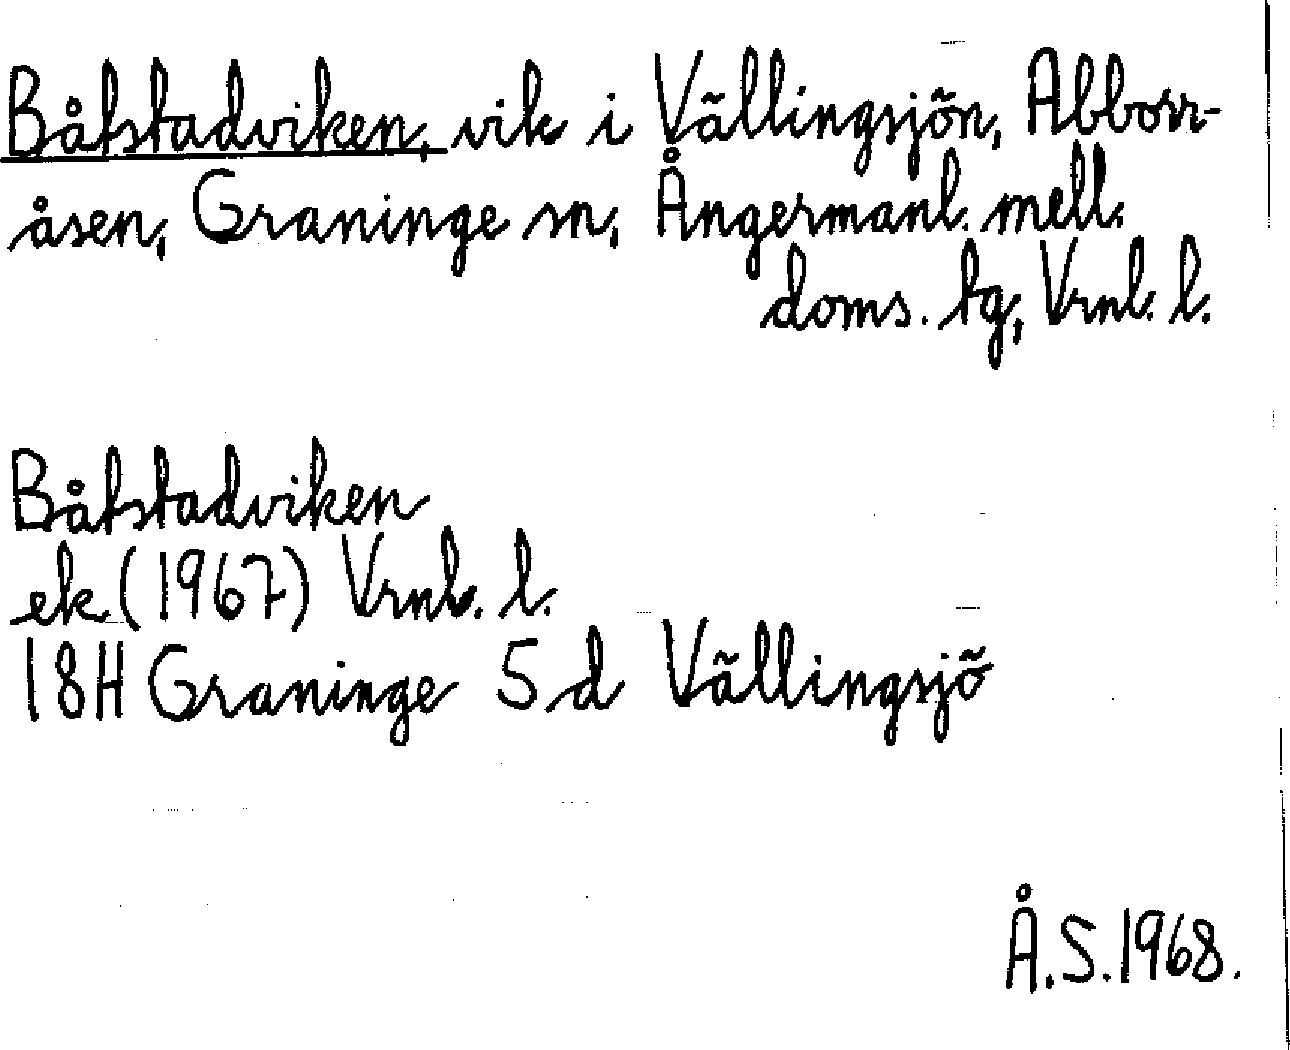 Båtstadviken, vik i Vällingsjön, Abborr-
åsen, Graninge sn, Ångermanl. mell.
doms. tg, Vrnl. l.
Båtstadviken
ek (1967) Vrnl. l.
18H Graninge 5 d Vällingsjö
Å.S.1968.